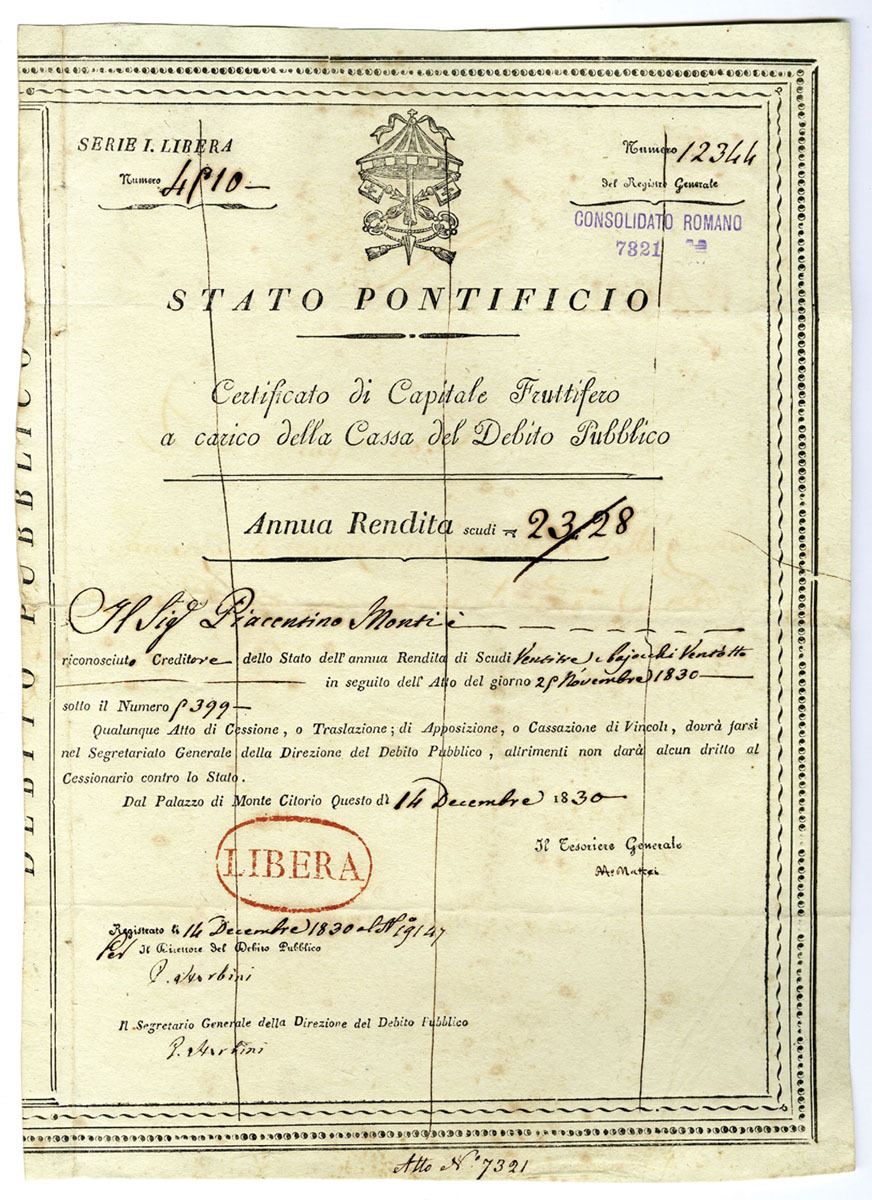 SERIE I. LIBERA
Numero
Numero 12344
del Registro Generale
CONSOLIDATO ROMANO
7321
STATO PONTIFICIO
Certificato di Capitale Fruttifero
a carico della Cassa del Debito Pubblico
Annua Rendita scudi 23/28
Il Sigr Piacentino Monti è
riconosciuto Creditore dello Stato dell'annua Rendita di Scudi Ventitre e bajocchi Ventotto
in seguito dell'Atto del giorno Novembre 1830
sotto il Numero
Qualunque Atto di Cessione, o Traslazione; di Apposizione, o Cassazione di Vincoli, dovrà farsi
nel Segretariato Generale della Direzione del Debito Pubblico, altrimenti non darà alcun dritto al
Cessionario contro lo Stato.
Dal Palazzo di Monte Citorio Questo dì 14 Decembre 1830
LIBERA
Il Tesoriere Generale
M. Mattei
Registrato li 14 Decembre 1830 al No 19147
Per Il Direttore del Debito Pubblico
Il Segretario Generale della Direzione del Debito Pubblico
Atto No. 7321
DEBITO PUBBLICO